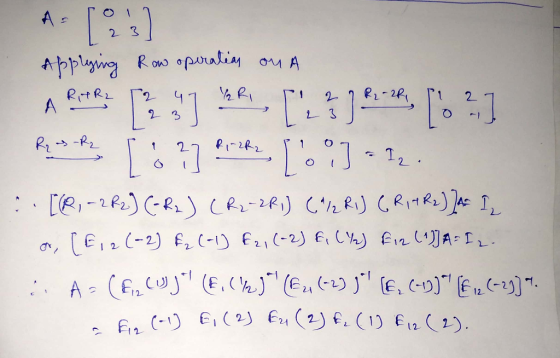 A = [ 0 1 2 3 ]
Applying Row operation on A
A R₁+R₂ → [ 2 4 2 3 ] ½ R₁ → [ 1 2 2 3 ] R₂-2R₁ → [ 1 2 0 -1 ]
R₂ → -R₂ → [ 1 2 0 1 ] R₁-2R₂ → [ 1 0 0 1 ] = I₂.
∴ [(R₁-2R₂) (-R₂) (R₂-2R₁) (½ R₁) (R₁+R₂)]A = I₂
or, [E₁₂(-2) E₂(-1) E₂₁(-2) E₁(½) E₁₂(1)]A = I₂.
∴ A = (E₁₂(1))⁻¹ (E₁(½))⁻¹ (E₂₁(-2))⁻¹ [E₂(-1)]⁻¹ [E₁₂(-2)]⁻¹.
= E₁₂(-1) E₁(2) E₂₁(2) E₂(1) E₁₂(2).